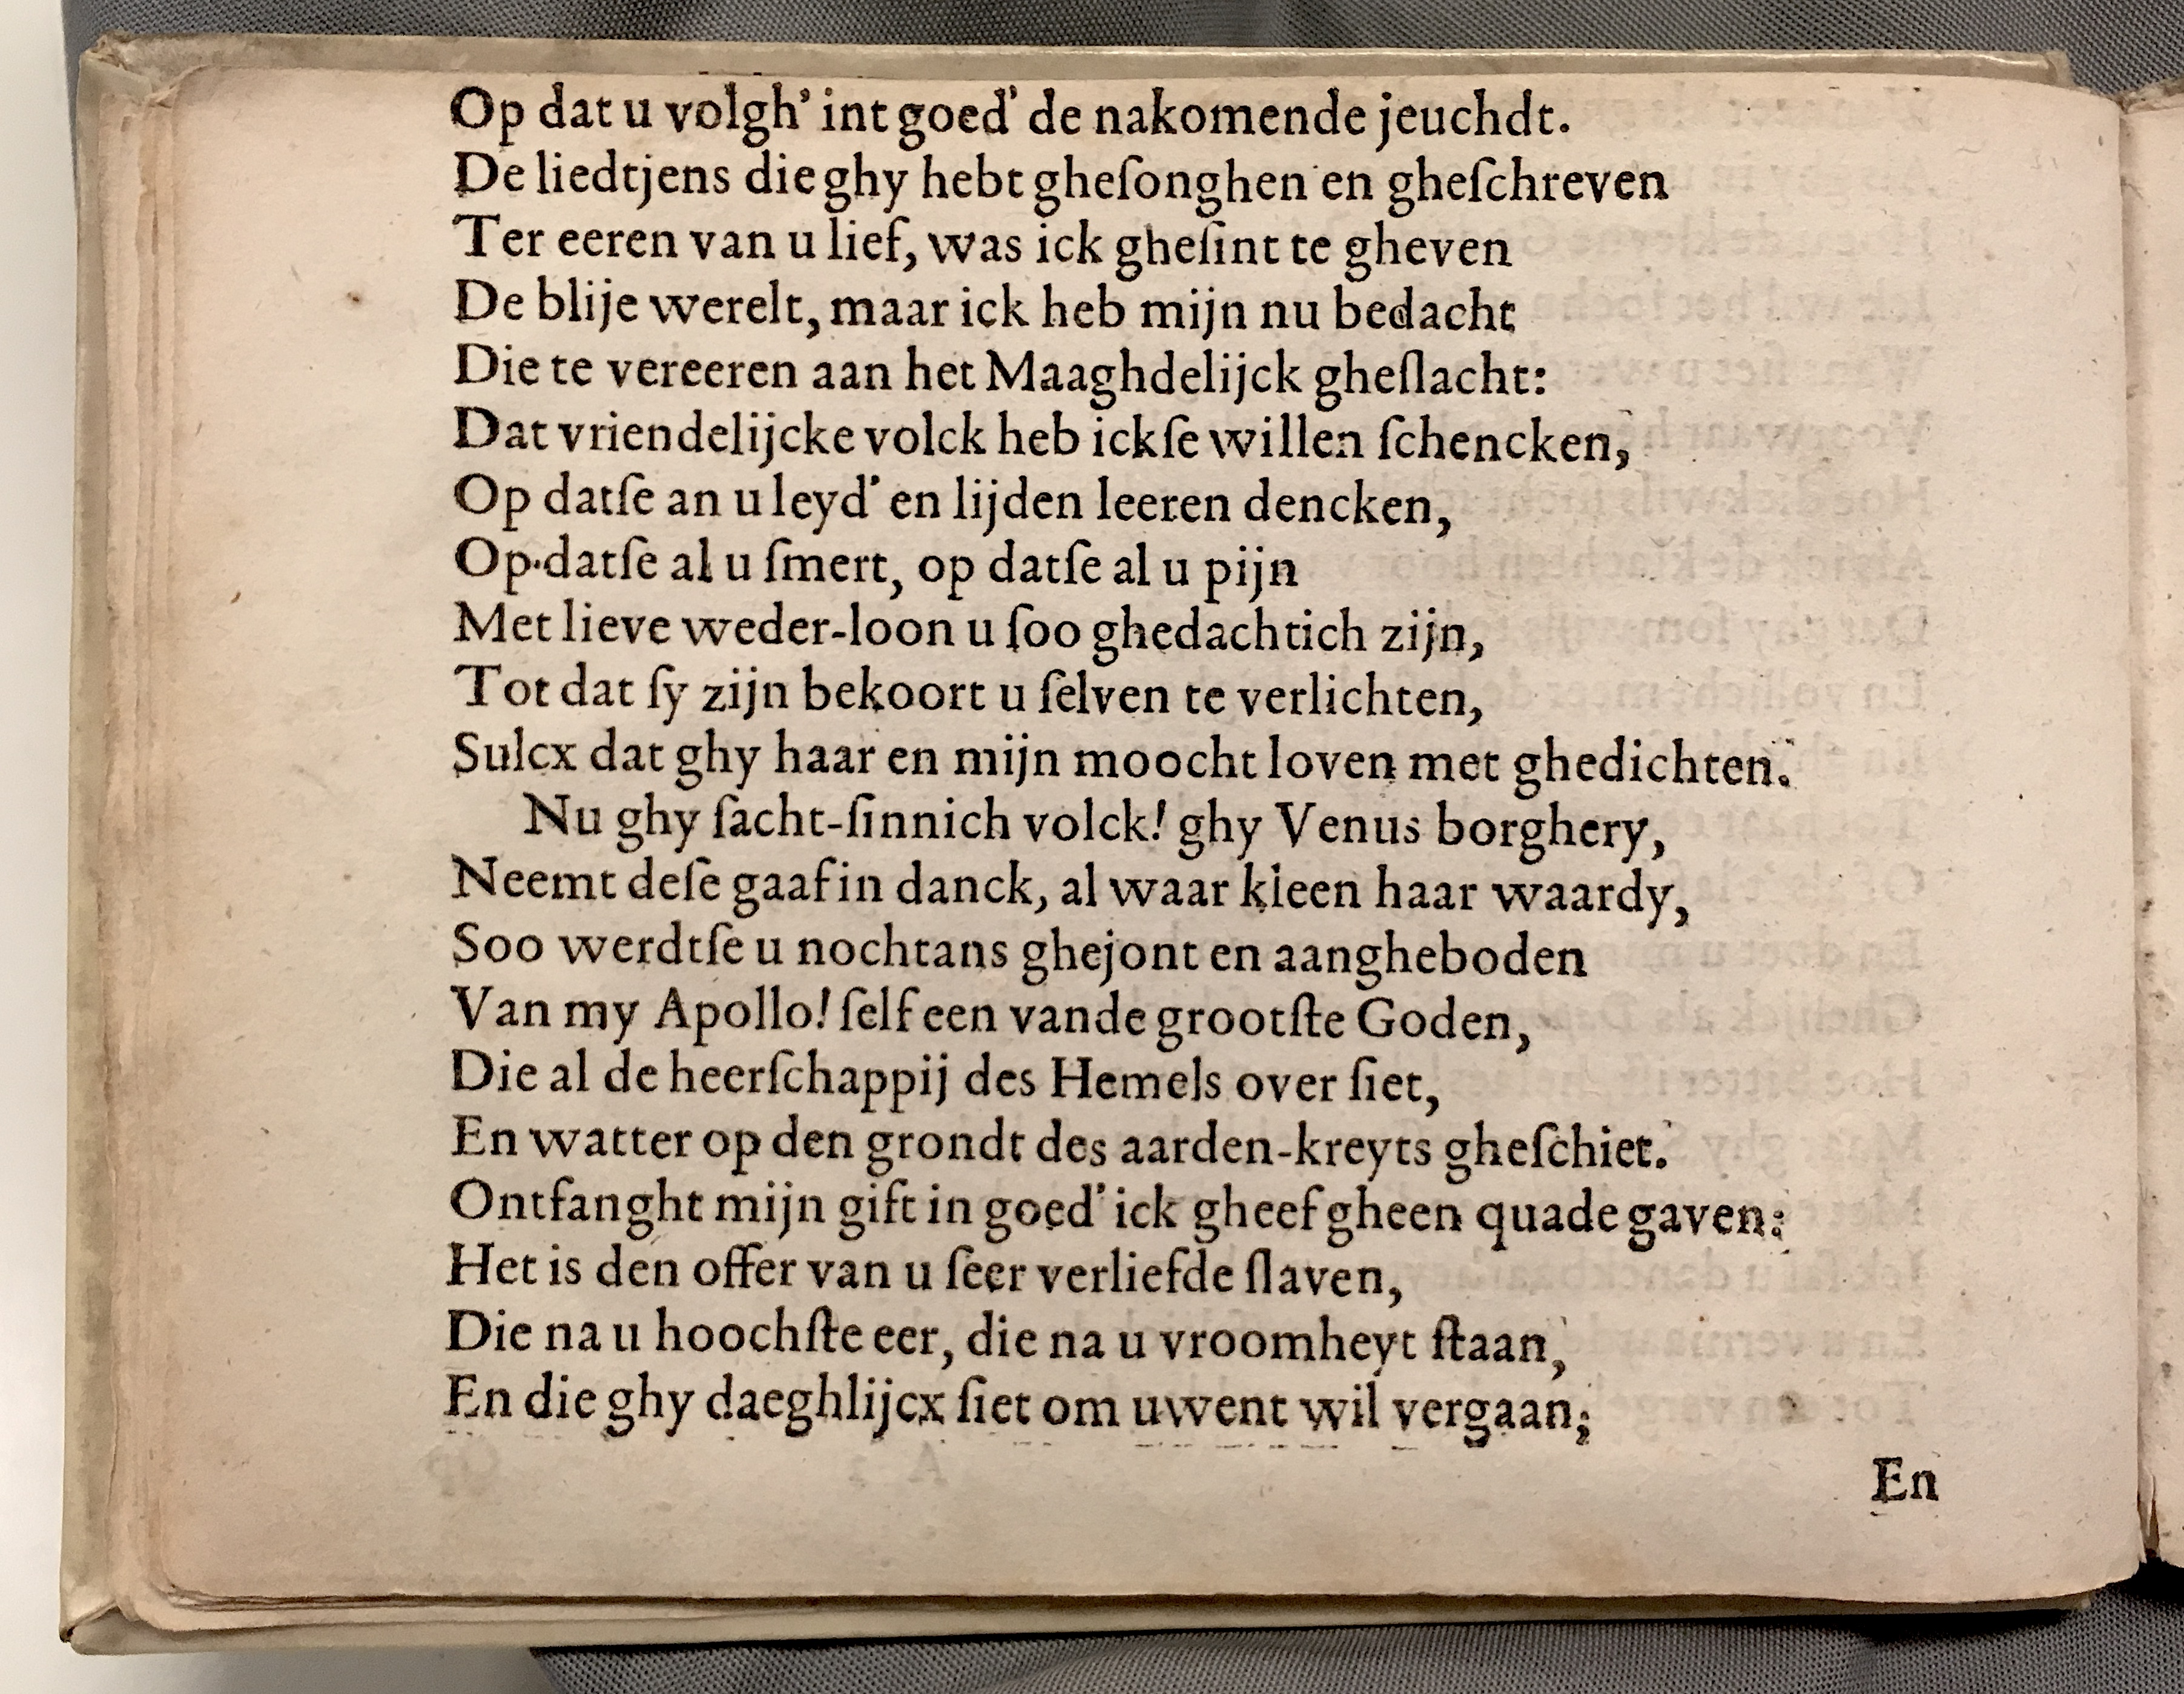 Op dat u volgh' int goed' de nakomende jeuchdt.
De liedtjens die ghy hebt gheſonghen en gheſchreven
Ter eeren van u lief, was ick gheſint te gheven
De blije werelt, maar ick heb mijn nu bedacht
Die te vereeren aan het Maaghdelijck gheſlacht:
Dat vriendelijcke volck heb ickſe willen ſchencken,
Op datſe an u leyd' en lijden leeren dencken,
Op datſe al u ſmert, op datſe al u pijn
Met lieve weder-loon u ſoo ghedachtich zijn,
Tot dat ſy zijn bekoort u ſelven te verlichten,
Sulcx dat ghy haar en mijn moocht loven met ghedichten.
Nu ghy ſacht-ſinnich volck! ghy Venus borghery,
Neemt deſe gaaf in danck, al waar kleen haar waardy,
Soo werdtſe u nochtans ghejont en aangheboden
Van my Apollo! ſelf een vande grootſte Goden,
Die al de heerſchappij des Hemels over ſiet,
En watter op den grondt des aarden-kreyts gheſchiet.
Ontfanght mijn gift in goed' ick gheef gheen quade gaven:
Het is den offer van u ſeer verliefde ſlaven,
Die na u hoochſte eer, die na u vroomheyt ſtaan,
En die ghy daeghlijcx ſiet om uwent wil vergaan;
En